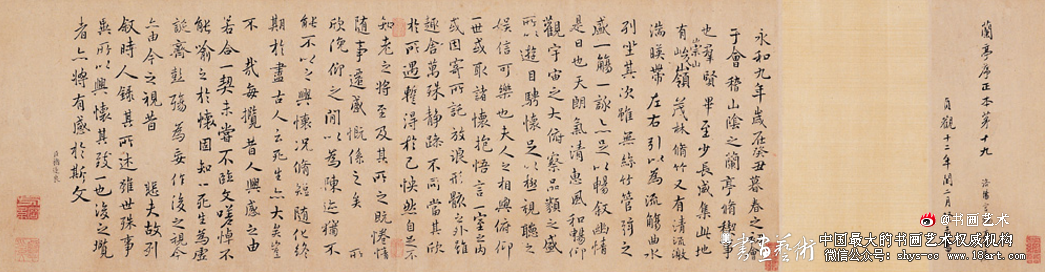 蘭亭序正本第十九
貞觀十二年閏二月
永和九年歲在癸丑暮春之初會
于會稽山陰之蘭亭脩禊事
也羣賢畢至少長咸集此地
有崇山峻嶺茂林脩竹又有清流激
湍暎帶左右引以為流觴曲水
列坐其次雖無絲竹管絃之
盛一觴一詠亦足以暢叙幽情
是日也天朗氣清惠風和暢仰
觀宇宙之大俯察品類之盛
所以遊目騁懷足以極視聽之
娛信可樂也夫人之相與俯仰
一世或取諸懷抱悟言一室之內
或因寄所託放浪形骸之外雖
趣舍萬殊靜躁不同當其欣
於所遇暫得於己怏然自足不
知老之將至及其所之既惓情
隨事遷感慨係之矣 所
欣俛仰之間以為陳迹猶不
能不以之興懷況脩短隨化終
期於盡古人云死生亦大矣豈
不 哉每攬昔人興感之由
若合一契未嘗不臨文嗟悼不
能喻之於懷固知一死生為虛
誕齊彭殤為妄作後之視今
亦由今之視昔 悲夫故列
叙時人錄其所述雖世殊事
異所以興懷其致一也後之攬
者亦將有感於斯文
臣褚遂良
@书画艺术
書畫藝術
中国最大的书画艺术权威机构
微信公众号:shys-cc www.18art.com